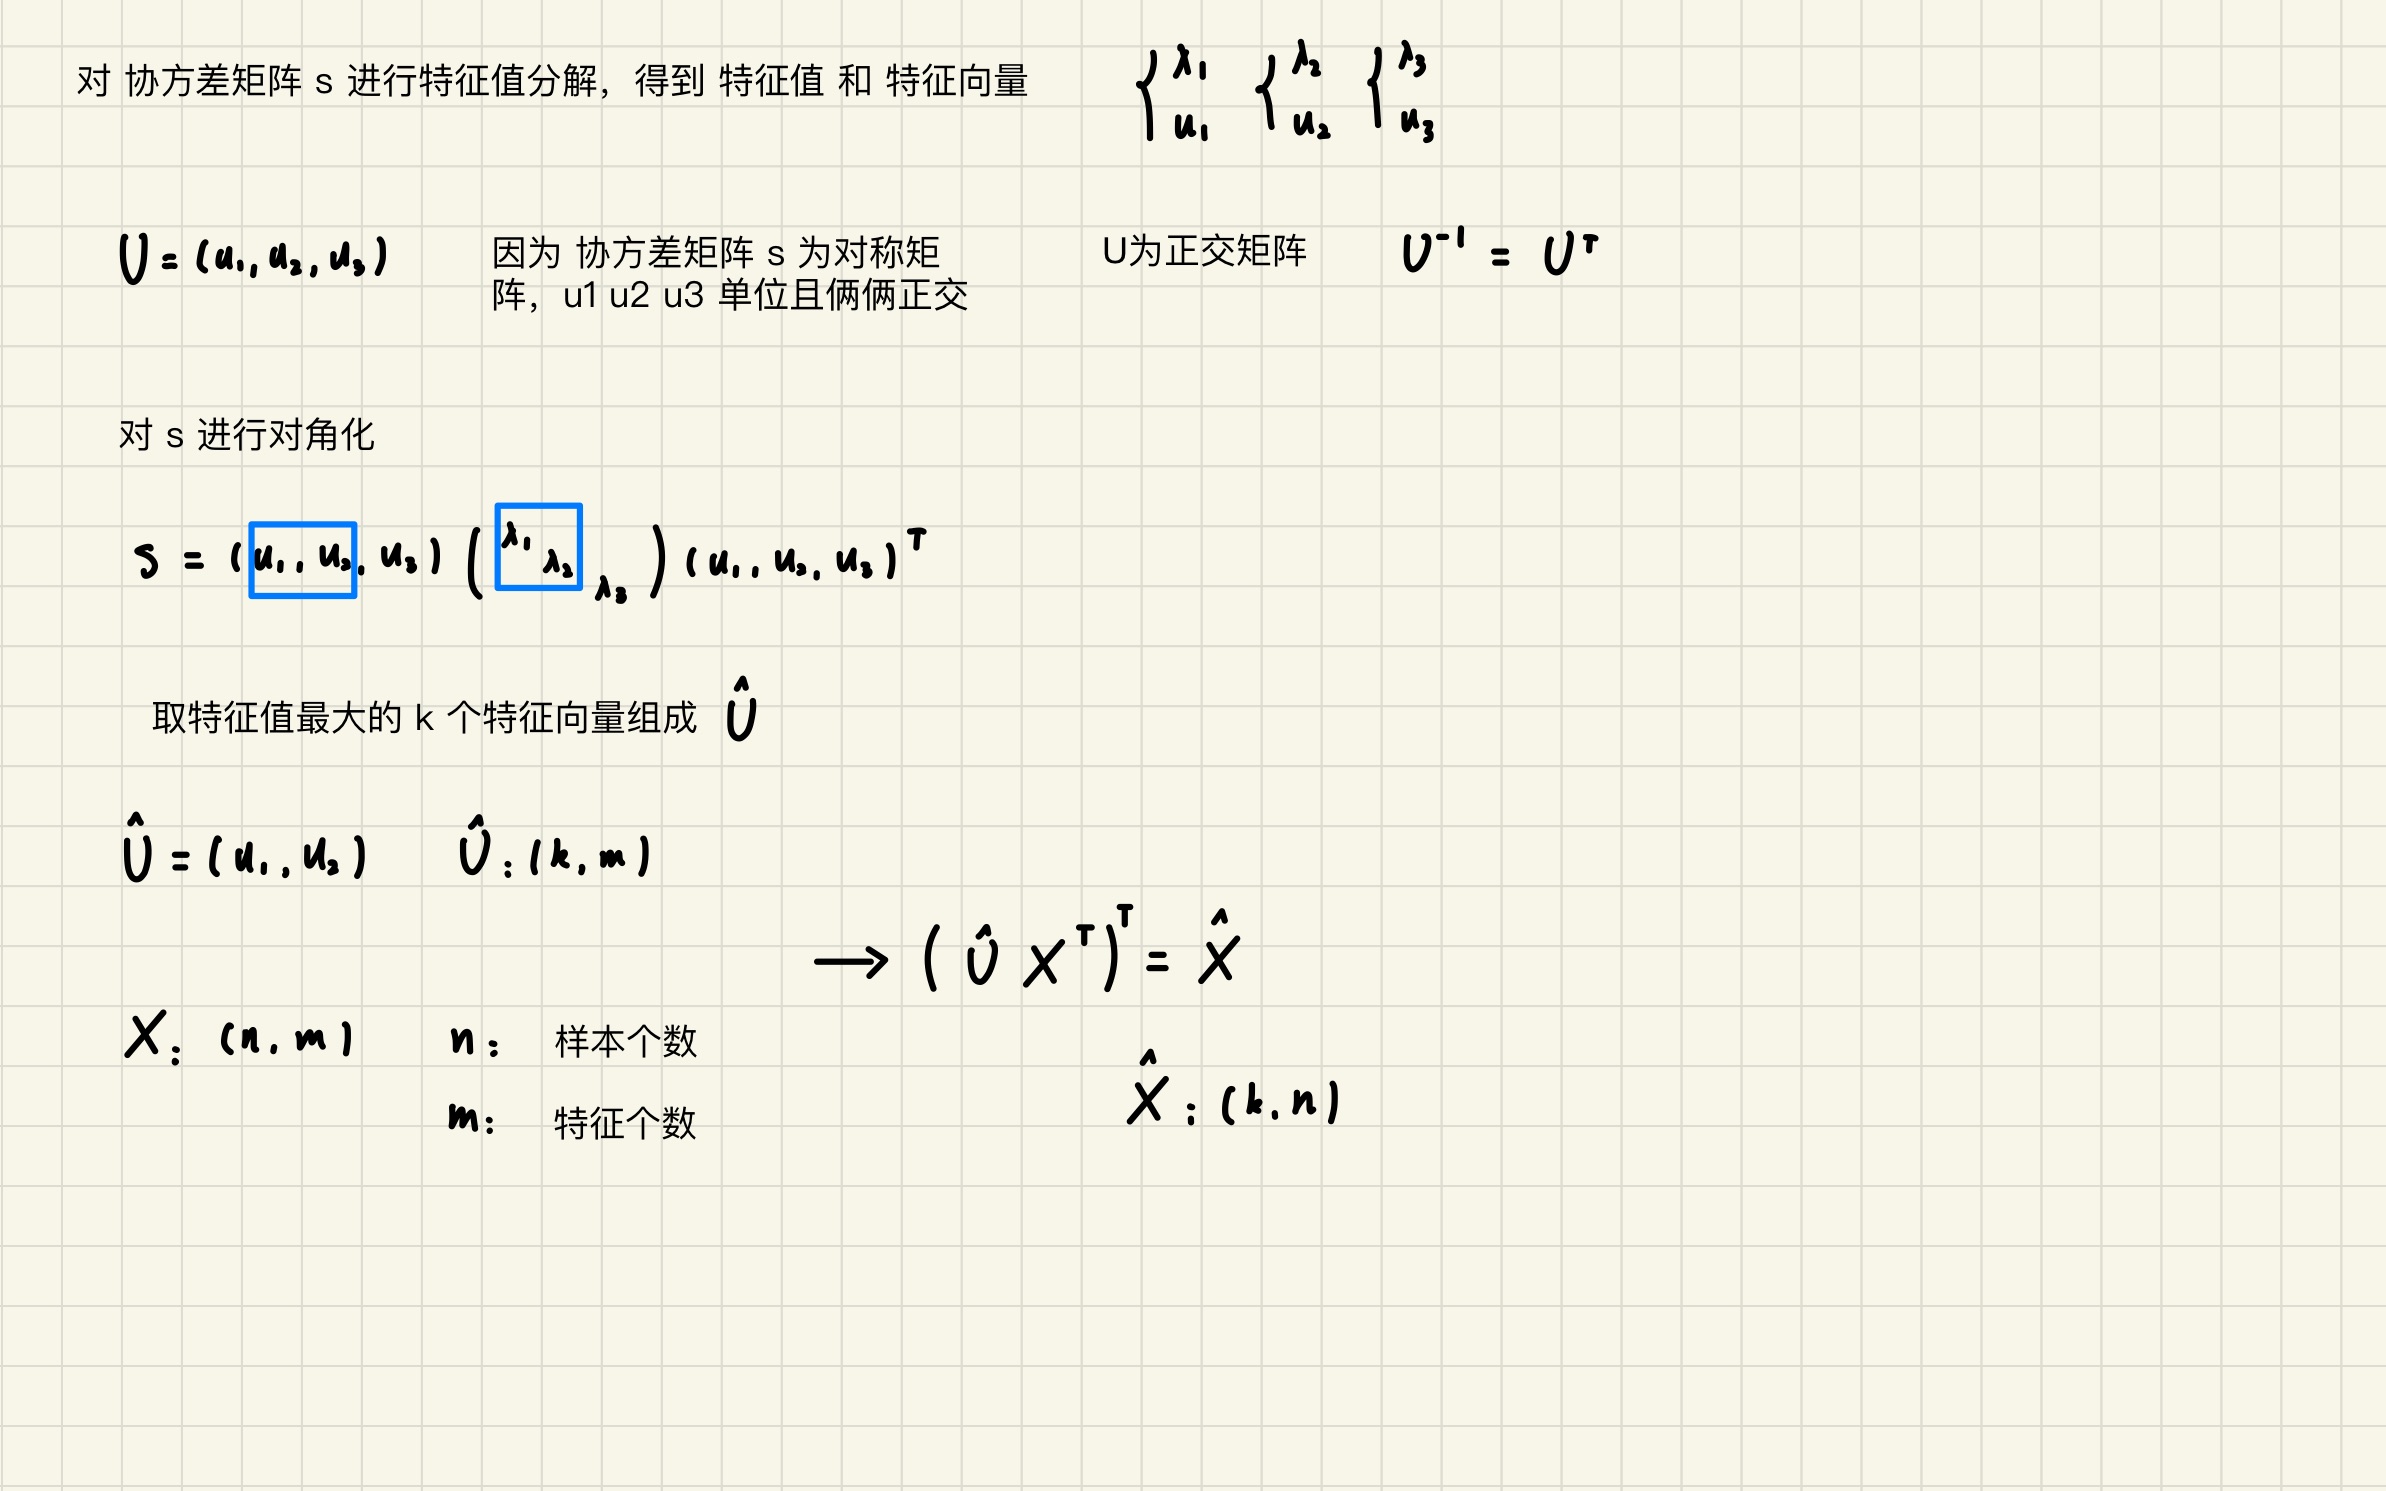 对 协方差矩阵 s 进行特征值分解，得到 特征值 和 特征向量 { λ₁ u₁ { λ₂ u₂ { λ₃ u₃
U = (u₁, u₂, u₃)
因为 协方差矩阵 s 为对称矩
阵，u1 u2 u3 单位且俩俩正交
U为正交矩阵 U⁻¹ = Uᵀ
对 s 进行对角化
S = (u₁, u₂, u₃) ( λ₁ λ₂ λ₃ ) (u₁, u₂, u₃)ᵀ
取特征值最大的 k 个特征向量组成 Û
Û = (u₁, u₂) Û : (k, m)
→ ( Û Xᵀ )ᵀ = X̂
X : (n, m) n : 样本个数
m : 特征个数
X̂ : (k, n)